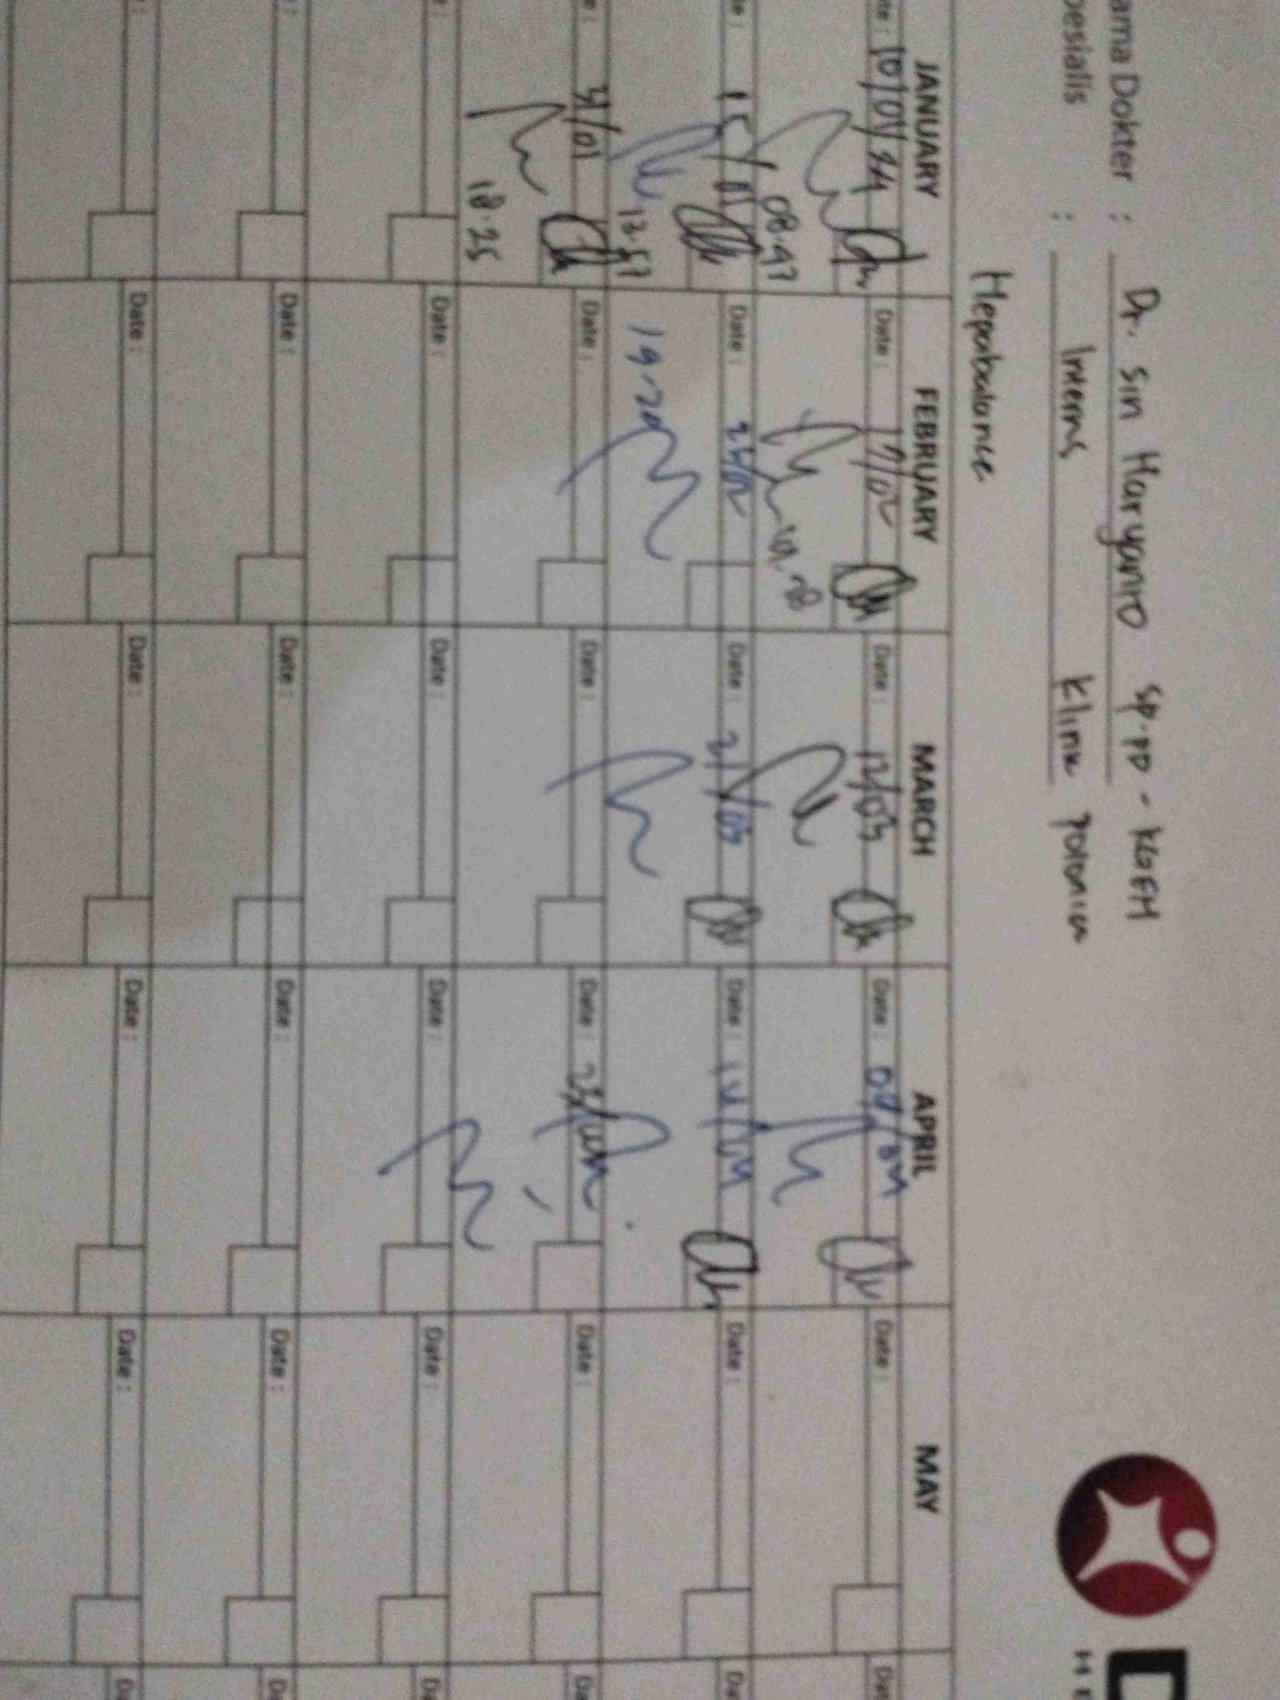 ama Dokter : Dr. Sin Haryanto Sp.PD - KGEH
pesialis : Interns Klinik Polonia
Hepabalance
JANUARY FEBRUARY MARCH APRIL MAY
te : 10/01/24 Date : 17/02 Date : 12/03 Date : 04/04 Date : Da
08.47
te : 15/01 Date : 25/02 Date : 21/03 Date : 14/04 Date : Da
13.57 19-20
e : 31/01 Date : Date : Date : 23/04 Date : Da
18.25
: Date : Date : Date : Date : Da
: Date : Date : Date : Date : Da
: Date : Date : Date : Date : Da